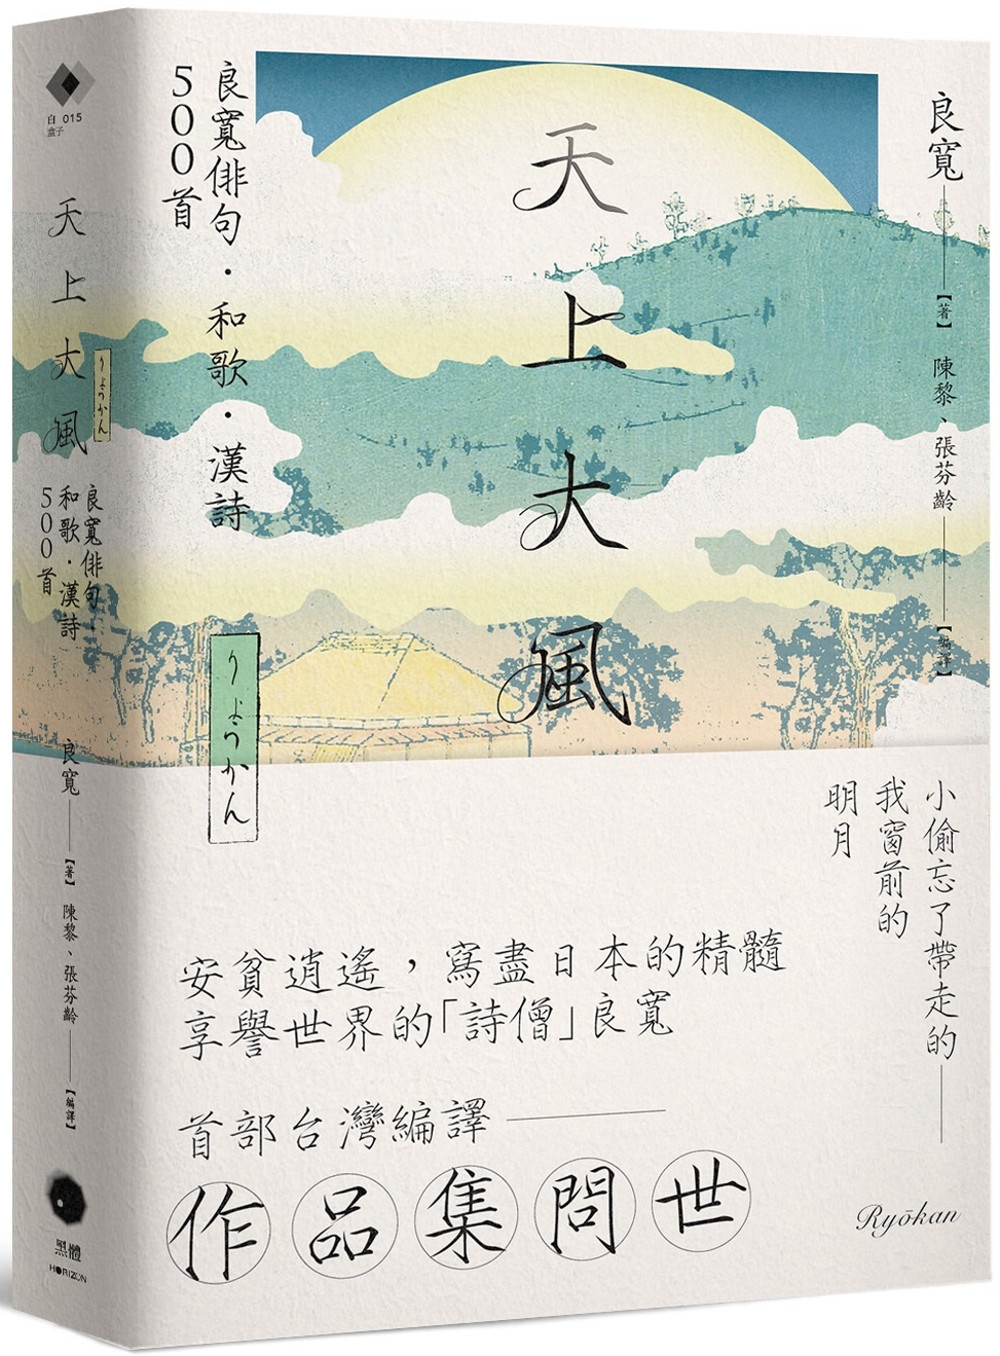 白 015
盒子
天上大風
りようかん
良寬俳句·
和歌·漢詩
500首
良寬──【著】 陳黎、張芬齡──【編譯】
黑體
HORIZON
良寬──【著】 陳黎、張芬齡──【編譯】
天上大風
良寬俳句·和歌·漢詩
500首
りようかん
小偷忘了帶走的──
我窗前的
明月
安貧逍遙，寫盡日本的精髓
享譽世界的「詩僧」良寬
首部台灣編譯──
作品集問世
Ryōkan